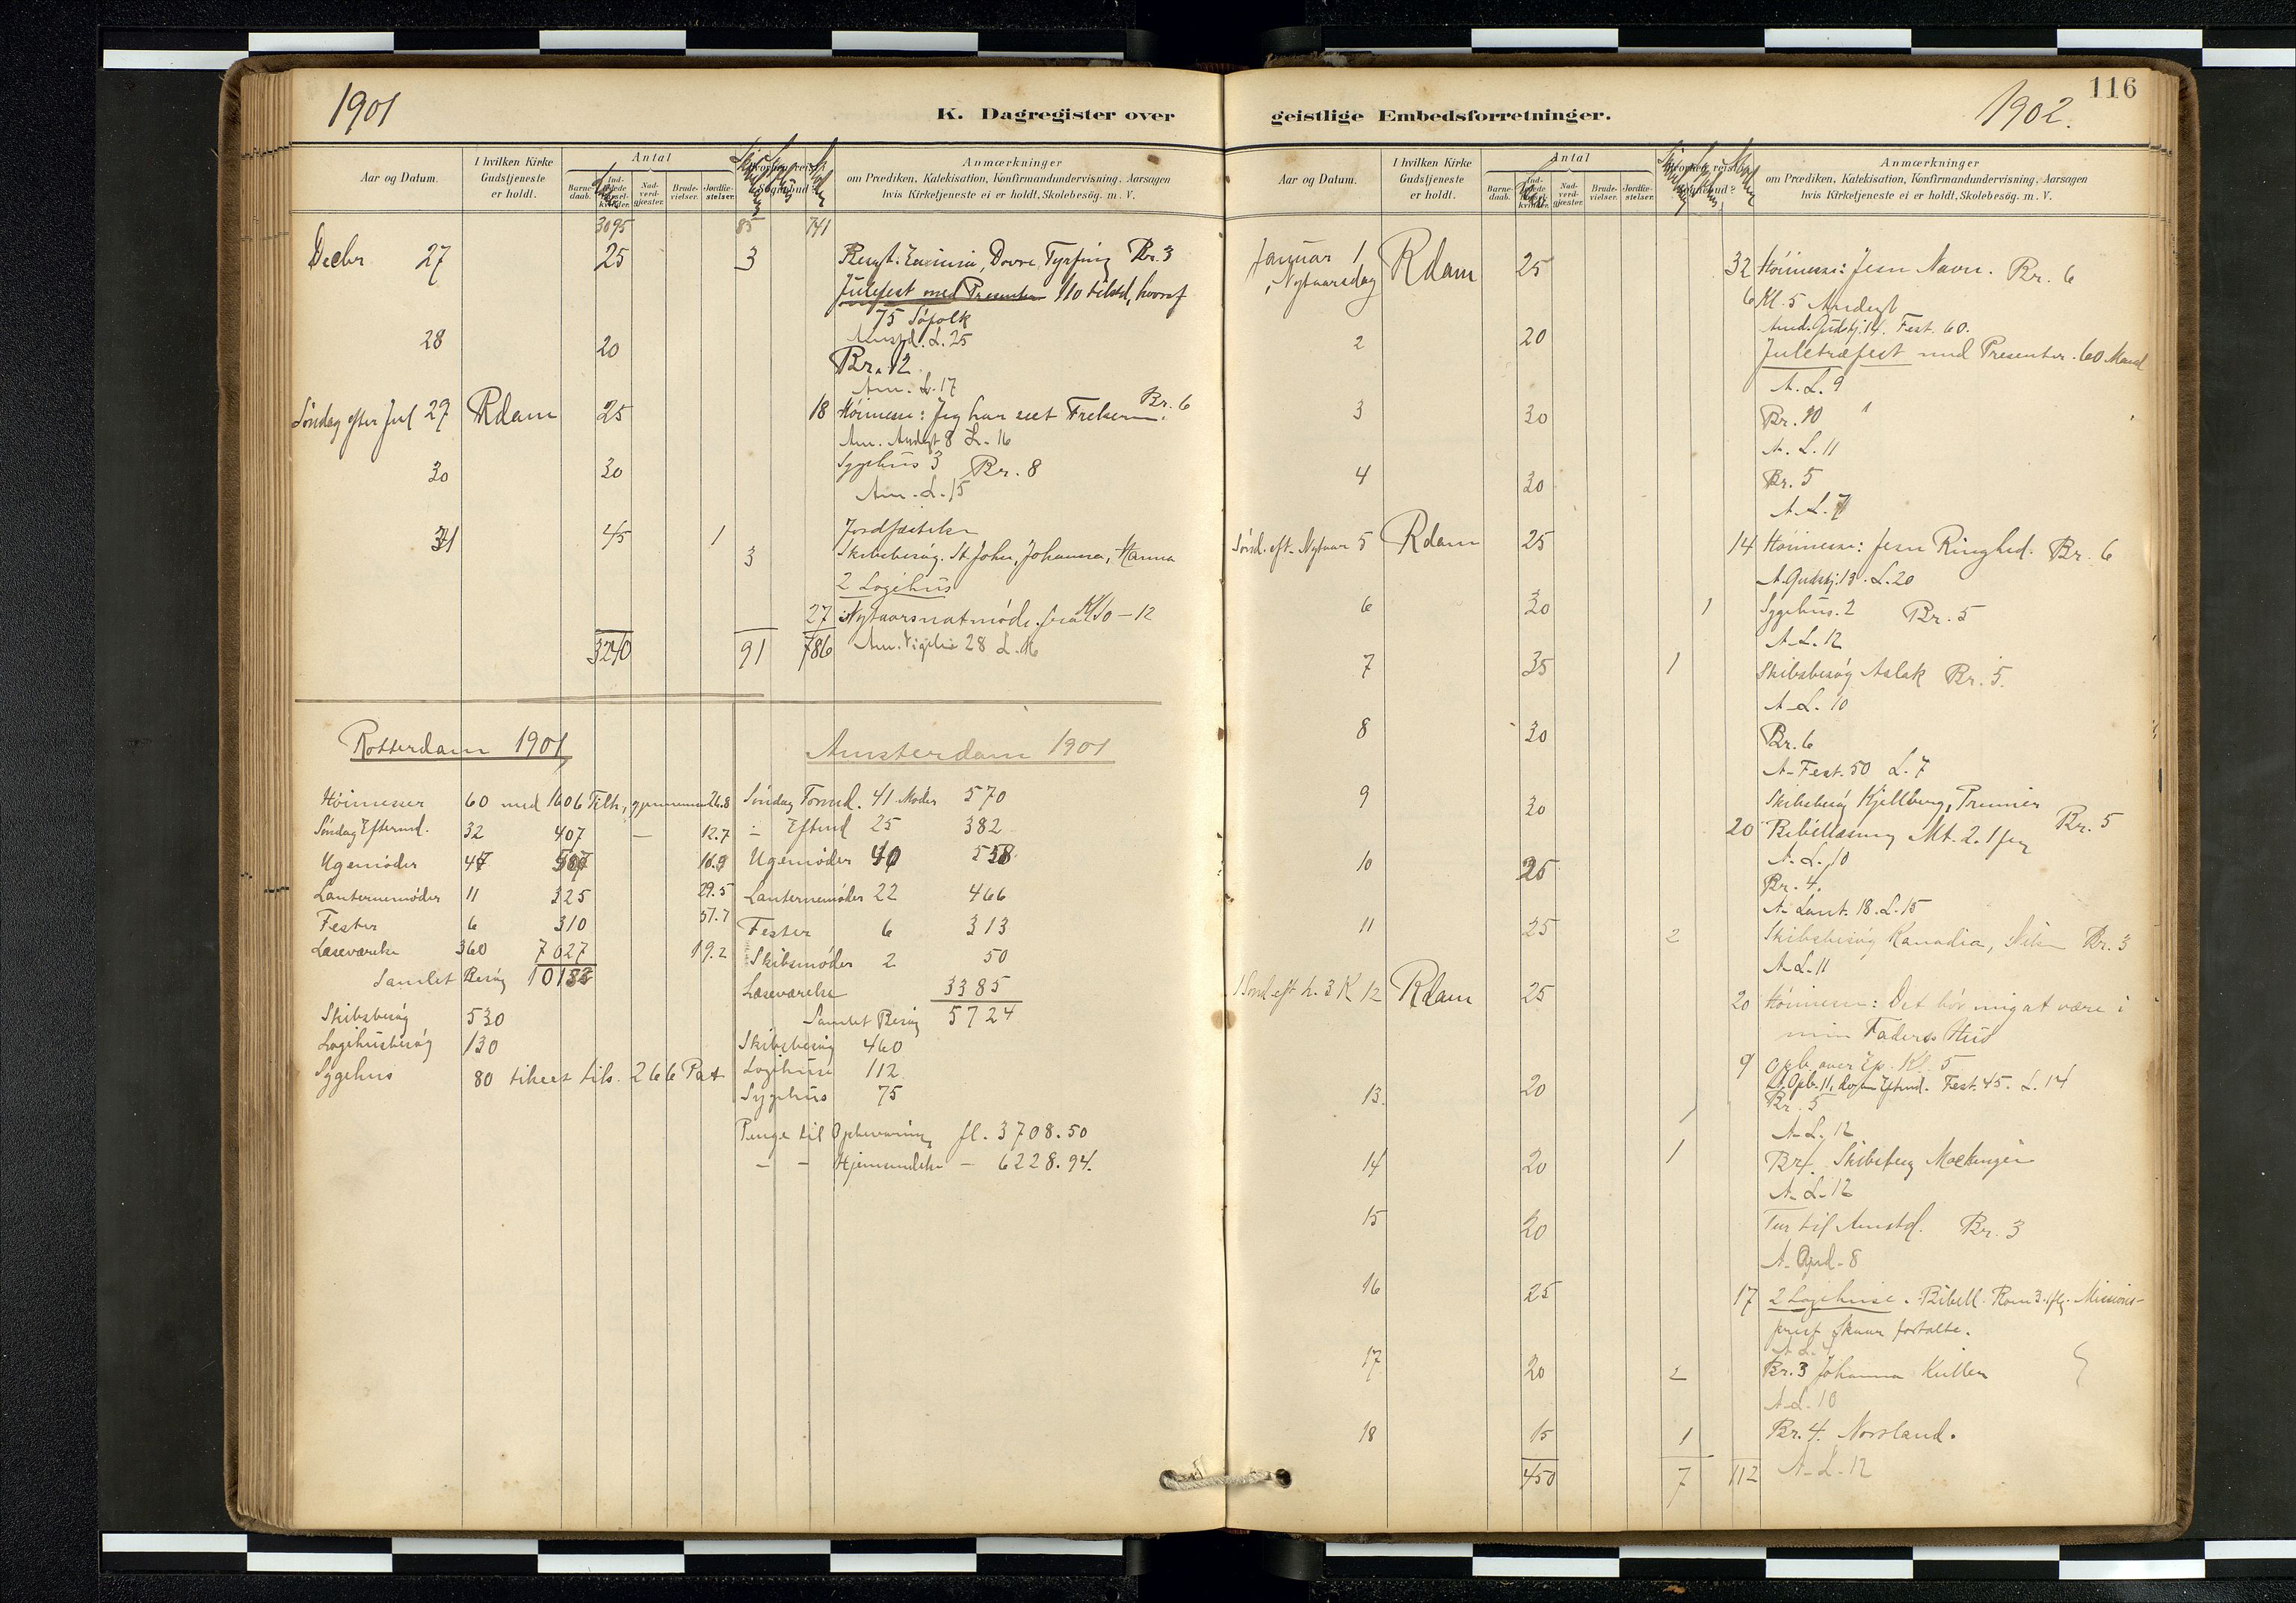 1901
K. Dagregister over
Aar og Datum.
I hvilken Kirke Gudstjeneste er holdt.
Antal
Barne-daab.
Nad-verd-gjæster.
Brude-vielser.
Jordfæ-stelser.
Anmærkninger
om Prædiken, Katekisation, Konfirmandundervisning. Aarsagen
hvis Kirketjeneste ei er holdt, Skolebesög. m. V.
3095 85 741
Decbr 27 25 3 Dovre, Tyrfing Br. 3
Julefest med Presenter 110 tilsted, hvoraf
75 Søfolk
Amstd. L. 25
28 20 Br. 12
Am. L. 17
Søndag efter Jul 29 Rdam 25 18 Høimesse: Jeg har seet Frelseren. Br. 6
Am. Andagt 8 L. 16
30 30 Sygehus 3 Br. 8
Am. L. 15
31 45 1 Jordfæstelse
3 Skibsbesøg. St. John, Johanna, Hanna
2 Logihus
27 Nytaarsnatmøde. fra Kl 10 - 12
3240 91 786 Am. Vigilie 28 L. 16
Rotterdam 1901
Høimesser 60 med 1606 Tilh., gjennemsn 26.8
Søndag Efterm. 32 407 — 12.7
Ugemøder 47 507 16.9
Lanternemøder 11 325 29.5
Fester 6 310 51.7
Læseværelse 360 7027 19.2
Samlet Besøg 10182
Skibsbesøg 530
Logihusbesøg 130
Sygehus 80 tilseet tils. 266 Pat
Amsterdam 1901
Søndag Formd. 41 Møder 570
" Eftmd 25 382
Ugemøder 40 558
Lanternemøder 22 466
Fester 6 313
Skibsmøder 2 50
Læseværelse 3385
Samlet Besøg 5724
Skibsbesøg 460
Logihuse 112
Sygehus 75
Penge til Opbevaring fl. 3708.50
— — Hjemsendelse — 6228.94.
116
geistlige Embedsforretninger.
1902.
Aar og Datum.
I hvilken Kirke Gudstjeneste er holdt.
Antal
Barne-daab.
Nad-verd-gjæster.
Brude-vielser.
Jordfæ-stelser.
Anmærkninger
om Prædiken, Katekisation, Konfirmandundervisning, Aarsagen
hvis Kirketjeneste ei er holdt, Skolebesög. m. V.
Januar 1 Nytaarsdag Rdam 25 32 Høimesse: Jesu Navn. Br. 6
6 Kl. 5 Andagt
Amd. Gudstj. 14. Fest. 60.
2 20 Juletræfest med Presenter. 60 Mand
A. L. 9
3 30 Br. 10
A. L. 11
4 30 Br. 5
A. L. 7
Sønd. eft. Nytaar 5 Rdam 25 14 Høimesse: Jesu Ringhed. Br. 6
A. Gudstj. 13. L. 20
6 30 1 Sygehus. 2 Br. 5
A. L. 12
7 35 1 Skibsbesøg Aslak Br. 5.
A. L. 10
8 30 Br. 6
A. Fest. 50 L. 7
9 30 Skibsbesøg Kjellberg, Premier
20 Bibellæsning Mt. 2. 1 flg Br. 5
A. L. 10
10 25 Br. 4.
A. Lant. 18. L. 15
11 25 2 Skibsbesøg Kanadia, Br. 3
A. L. 11
1 Sønd eft h. 3 K 12 Rdam 25 20 Høimesse: Det bør mig at være i
min Faders Hus
9 Opb. over Ep. Kl. 5
A. Opb. 11. Eftmd. Fest. 45. L. 14
13. 20 Br. 5
A. L. 12
14 20 1 Br. Skibsbesøg
A. L. 12
15 20 Tur til Amstd. Br. 3
A. 8
16 25 17 2 Logihuse. Bibell. Rom 3. 1 flg. Missions-
prest Skaar fortalte.
A. L.
17 20 2 Br. 3 Johanna Kullen
A. L. 10
18 15 1 Br. 4. Norsland.
450 7 112 A. L. 12